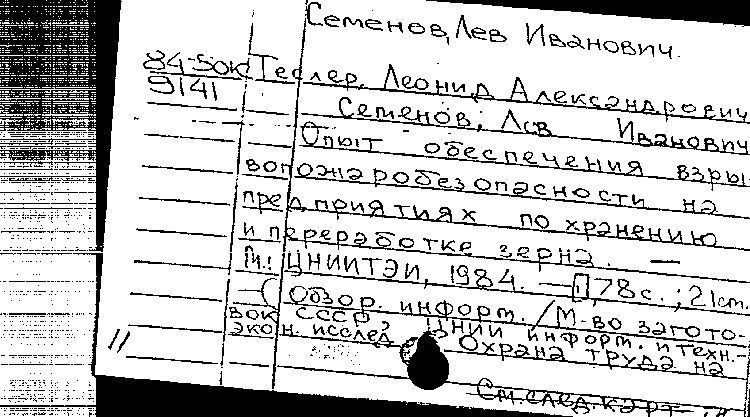 Семенов, Лев Иванович.
84-50к Теслер, Леонид Александрович
9141
Семенов, Лев Иванович
Опыт обеспечения взры-
вопожаробезопасности на
предприятиях по хранению
и переработке зерна. —
М.: ЦНИИТЭИ, 1984. — [1], 78 с.; 21 cm.
— (Обзор. информ. / М-во загото-
вок СССР, ЦНИИ информ. и техн.-
экон. исслед.
Охрана труда на
11
См. след. карт.